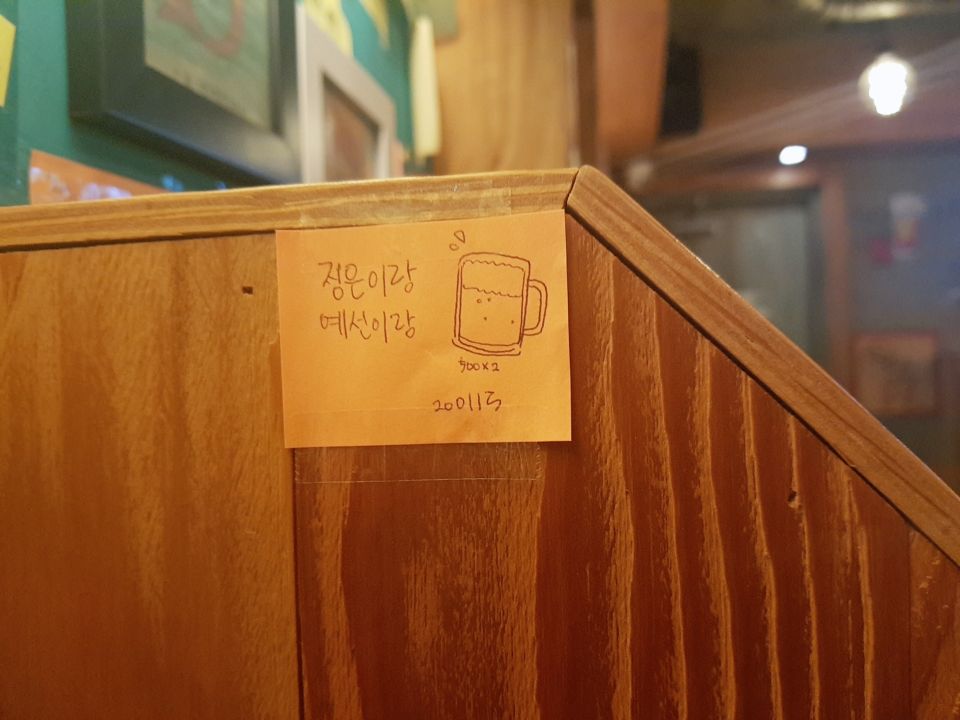 정은이랑
예선이랑
500x2
200115